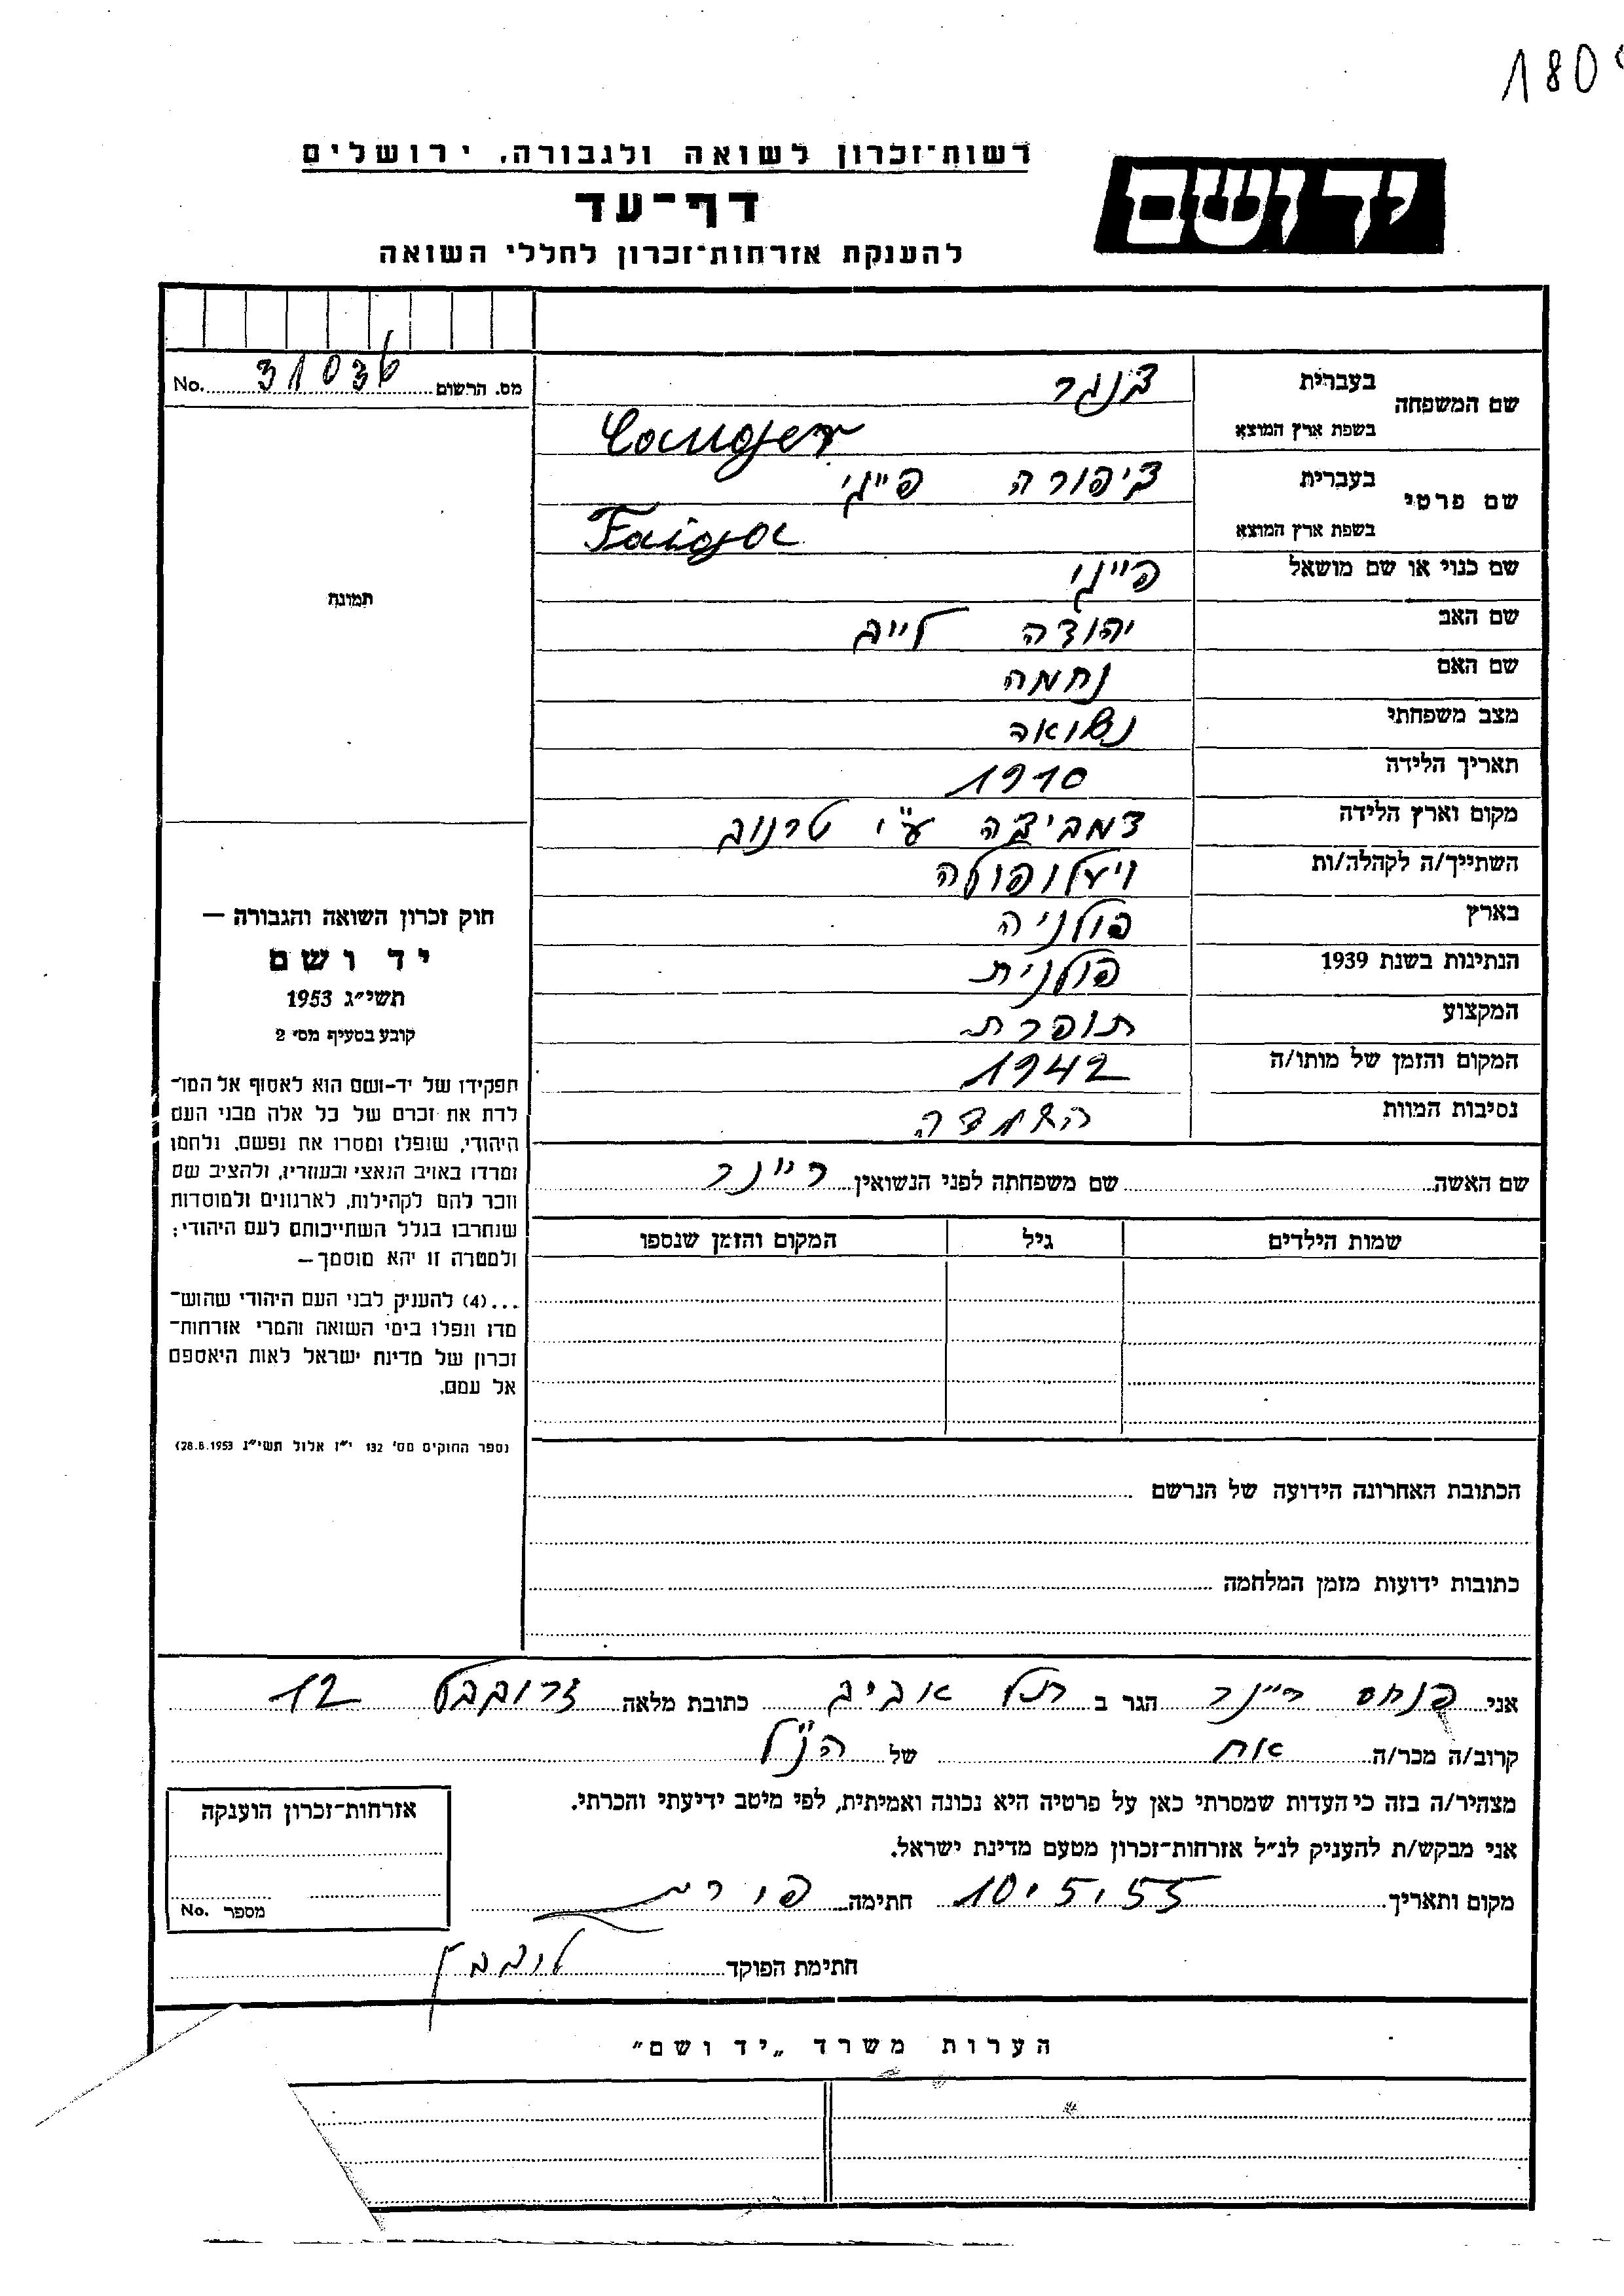 180
רשות־זכרון לשואה ולגבורה, ירושלים
יד ושם
דף־עד
להענקת אזרחות־זכרון לחללי השואה
מס. הרשום 31036 No.
שם המשפחה בעברית צנגר
בשפת ארץ המוצא Cangier
שם פרטי בעברית ציפורה פייגי
בשפת ארץ המוצא Faiga
שם כנוי או שם מושאל פייגי
שם האב יהודה לייב
שם האם נחמה
מצב משפחתי נשואה
תאריך הלידה 1910
מקום וארץ הלידה דמביצה ע"י טרנוב
השתייך/ה לקהלה/ות ויעלופולה
בארץ פולניה
הנתינות בשנת 1939 פולנית
המקצוע תופרת
המקום והזמן של מותו/ה 1942
נסיבות המוות השמדה
שם האשה שם משפחתה לפני הנשואין ריינר
שמות הילדים גיל המקום והזמן שנספו
הכתובת האחרונה הידועה של הנרשם
כתובות ידועות מזמן המלחמה
תמונה
חוק זכרון השואה והגבורה —
יד ושם
תשי״ג 1953
קובע בסעיף מס׳ 2
תפקידו של יד-ושם הוא לאסוף אל המו־
לדת את זכרם של כל אלה מבני העם
היהודי, שנפלו ומסרו את נפשם, נלחמו
ומרדו באויב הנאצי ובעוזריו, ולהציב שם
וזכר להם לקהילות, לארגונים ולמוסדות
שנחרבו בגלל השתייכותם לעם היהודי;
ולמטרה זו יהא מוסמך—
...(4) להעניק לבני העם היהודי שהוש־
מדו ונפלו בימי השואה והמרי אזרחות־
זכרון של מדינת ישראל לאות היאספם
אל עמם.
(ספר החוקים מס׳ 132 י״ז אלול תשי״ג 28.8.1953)
אני פנחס ריינר הגר ב תל אביב כתובת מלאה זרובבל 12
קרוב/ה מכר/ה אח של הנ"ל
מצהיר/ה בזה כי העדות שמסרתי כאן על פרטיה היא נכונה ואמיתית, לפי מיטב ידיעתי והכרתי.
אני מבקש/ת להעניק לנ״ל אזרחות־זכרון מטעם מדינת ישראל.
מקום ותאריך 10.5.55 חתימה
חתימת הפוקד
אזרחות־זכרון הוענקה
מספר No.
הערות משרד „יד ושם״